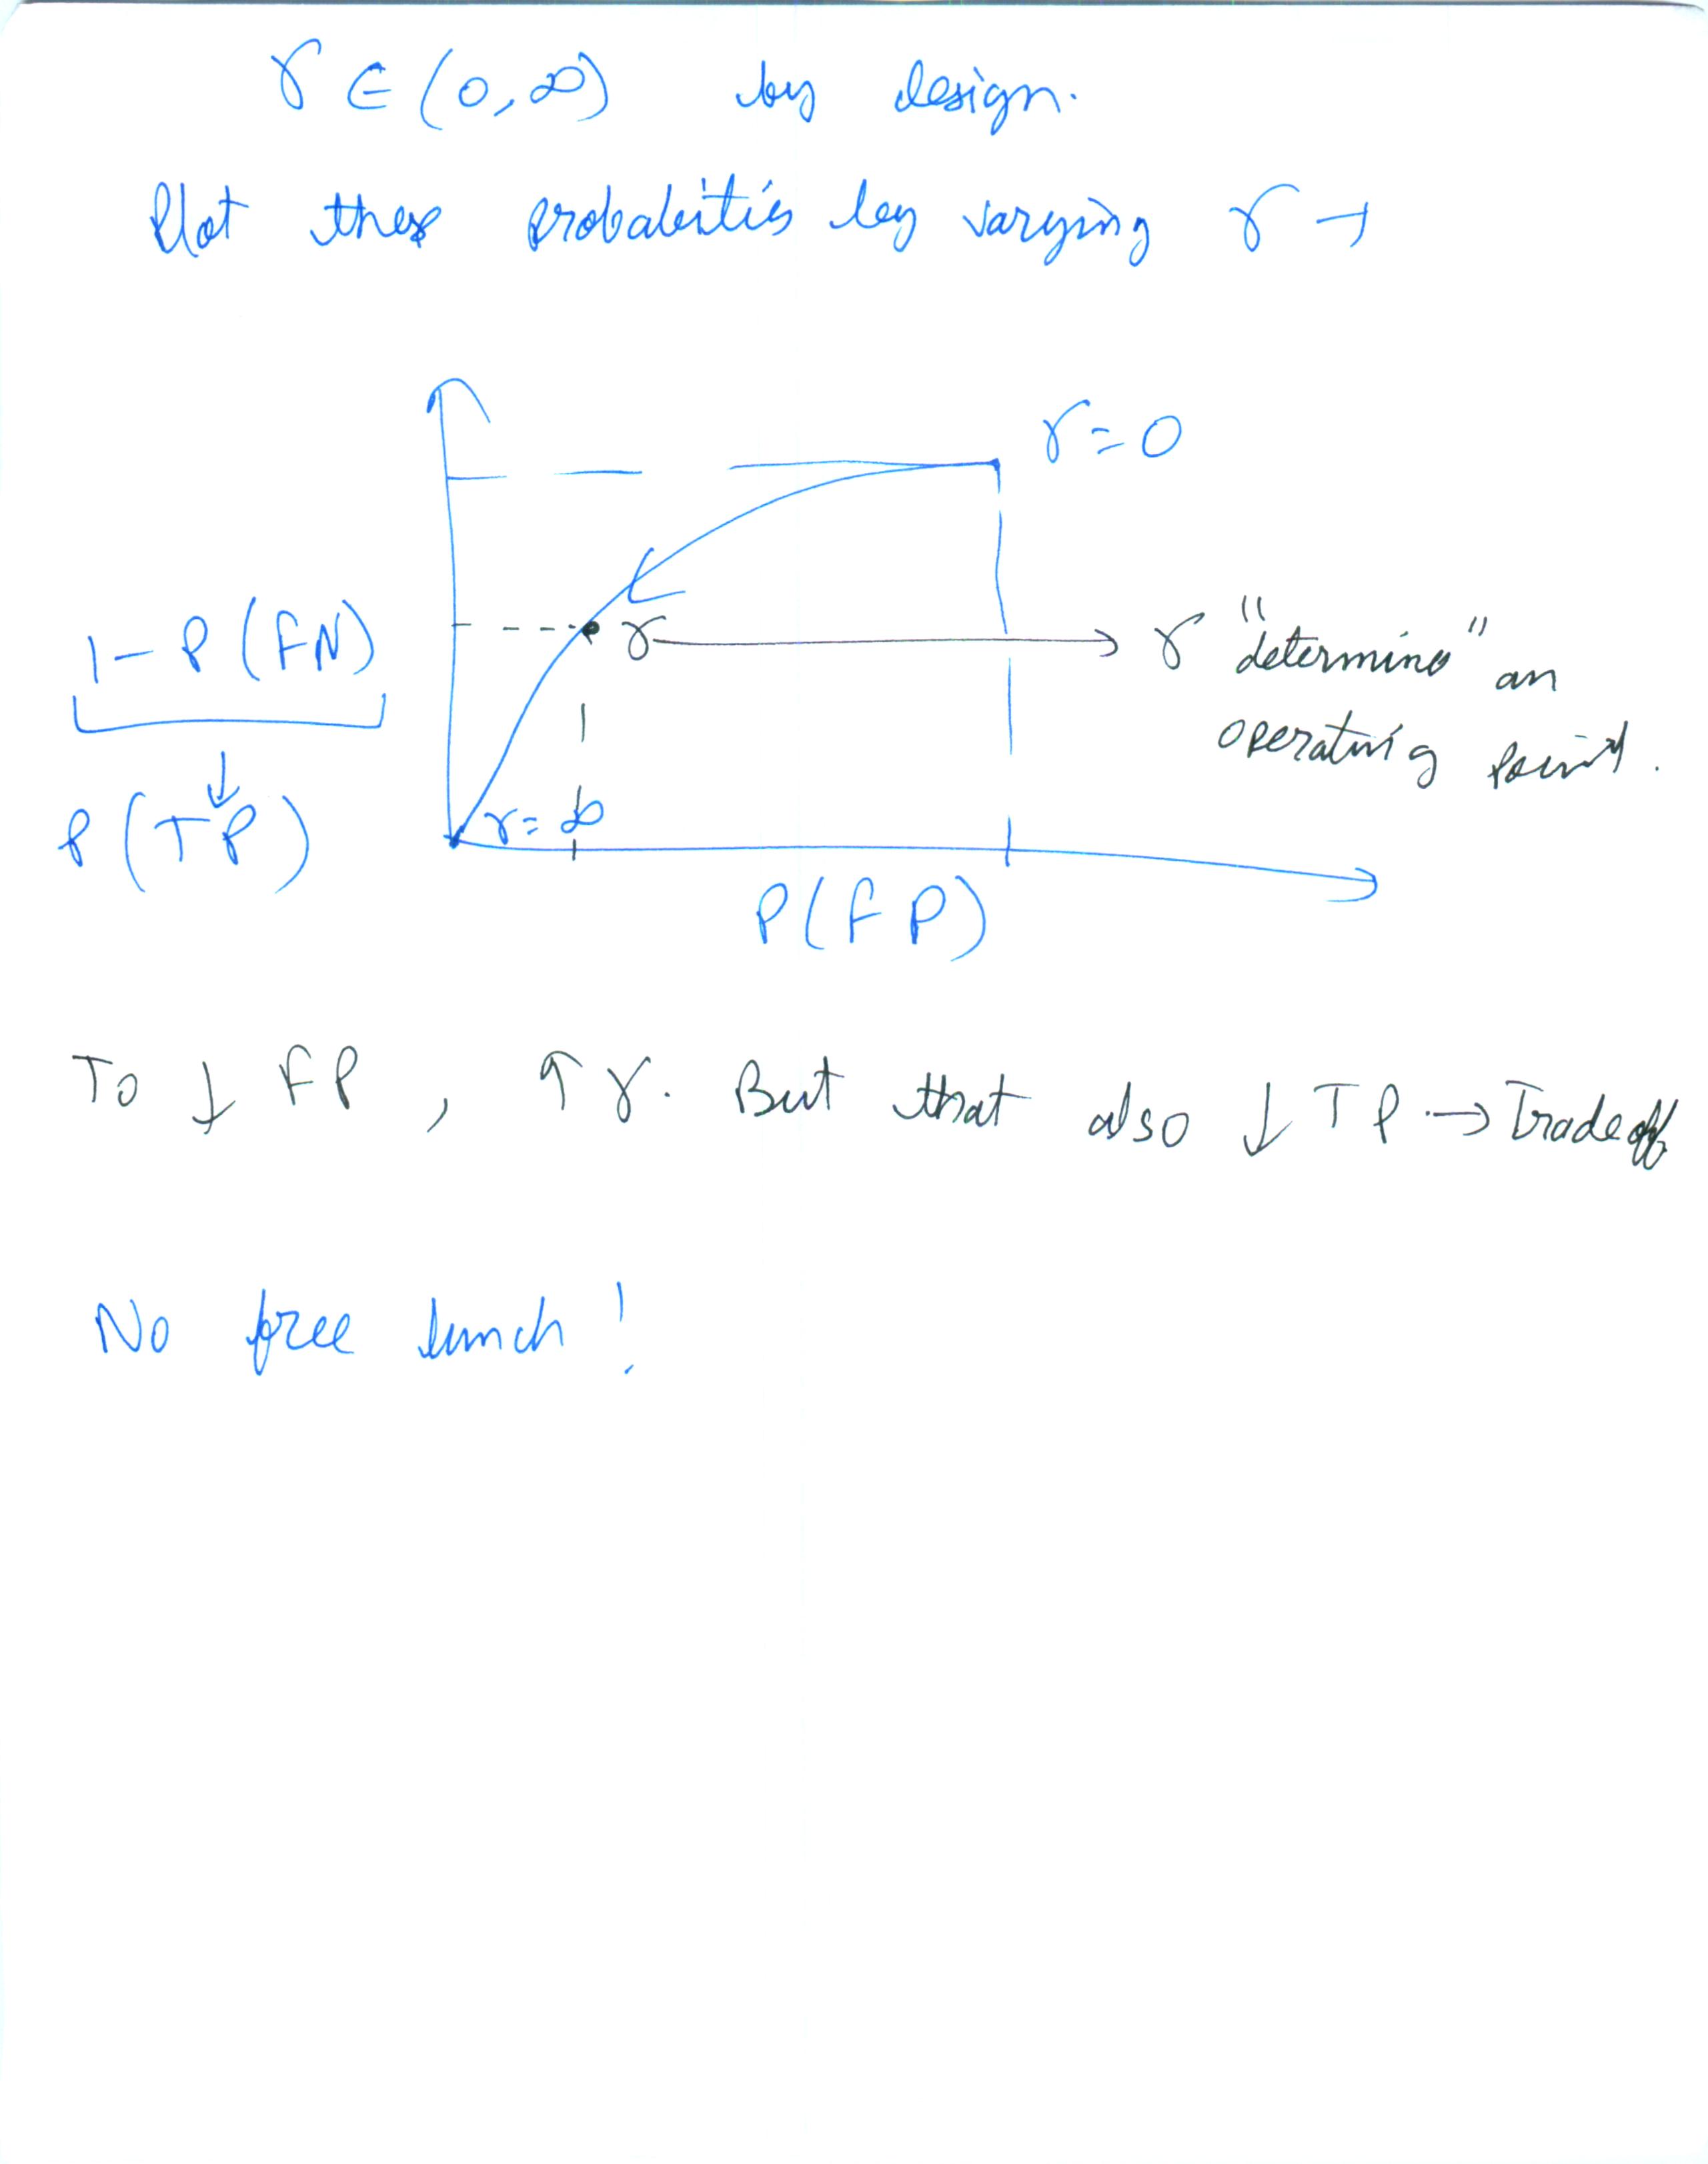 γ ∈ (0, ∞) by design.
Plot these probabilities by varying γ →
γ = 0
1 - P(FN)
γ
γ "determines" an
operating point.
↓
P(TP)
γ = ∞
P(FP)
To ↓ FP, ↑ γ. But that also ↓ TP. → Tradeoff
No free lunch!